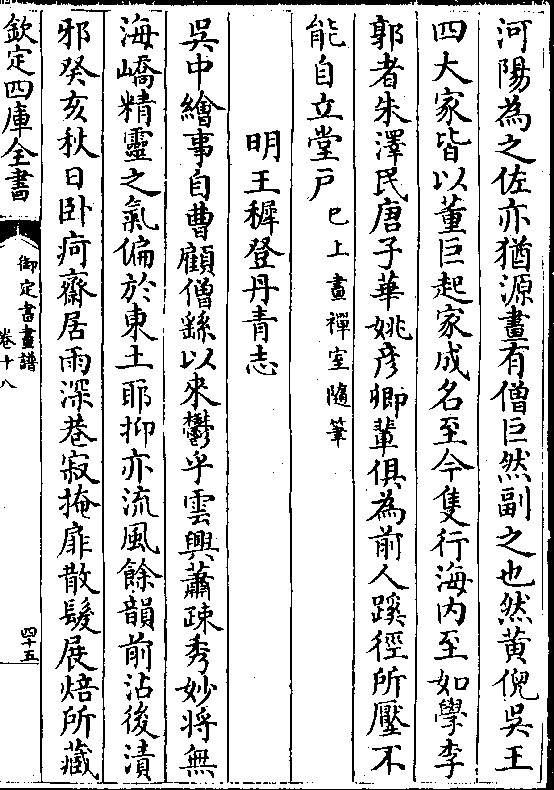 河陽為之佐亦猶源畫有僧巨然副之也然黄倪吳王
四大家皆以董巨起家成名至今隻行海内至如學李
郭者朱澤民唐子華姚彦卿輩俱為前人蹊徑所壓不
能自立堂戸已上畫禪室隨筆
明王穉登丹青志
吳中繪事自曹顧僧繇以來鬱乎雲興蕭疎秀妙将無
海嶠精靈之氣偏於東土耶抑亦流風餘韻前沾後漬
邪癸亥秋日卧疴齋居雨深巷寂掩扉散髮展焙所藏
欽定四庫全書
御定書畫譜
卷十八
四十五